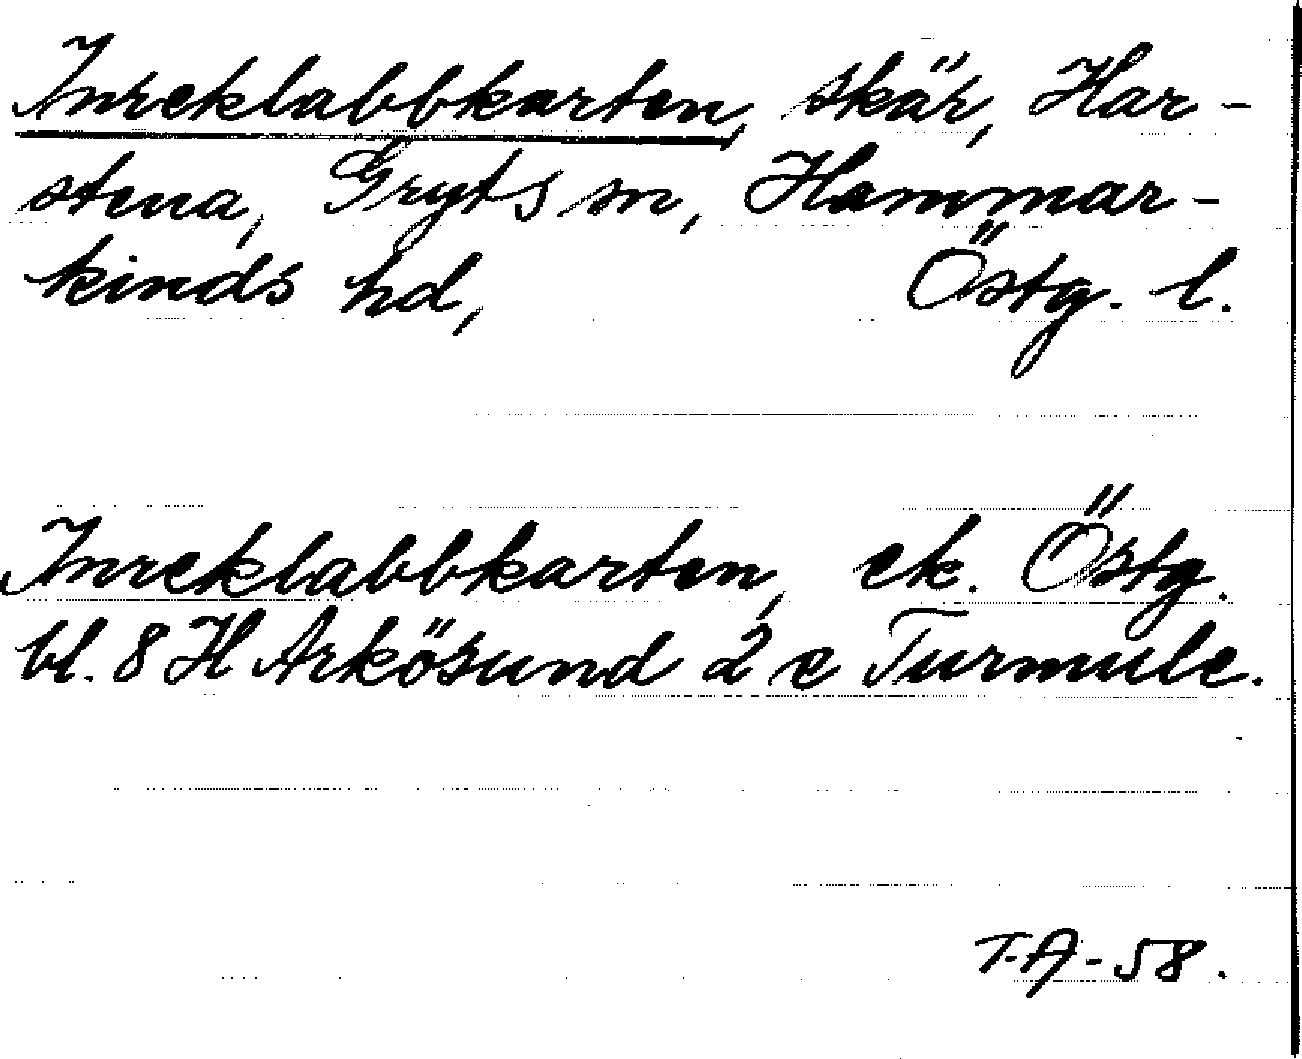 Inreklabbkarten, skär, Har-
stena, Gryts sn, Hammar-
kinds hd, Östg. l.
Inreklabbkarten, ek. Östg.
bl. 8 H Arkösund 2 c Turmule.
T.A-58.